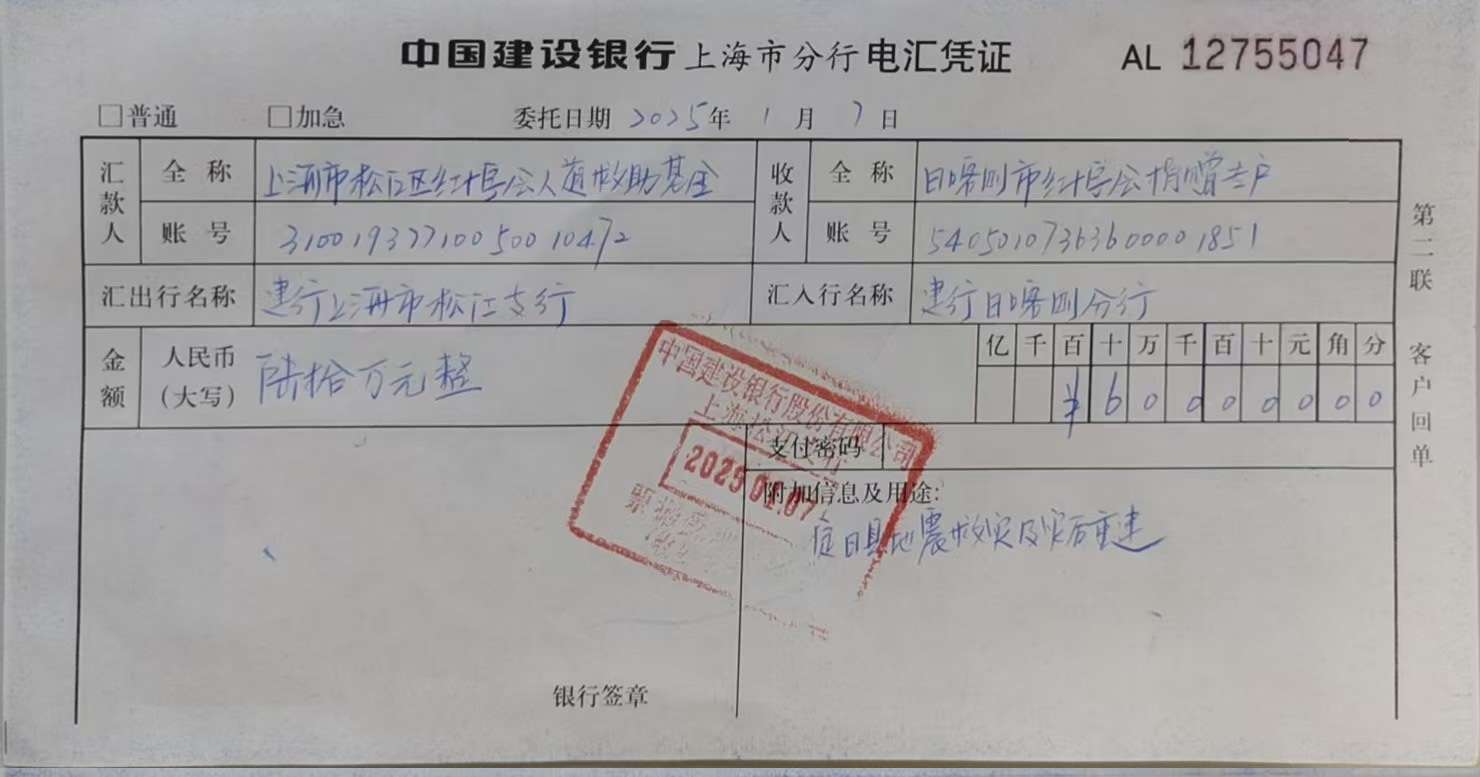 中国建设银行上海市分行电汇凭证 AL 12755047
□普通 □加急 委托日期 2025年 1月 7日
汇款人 全称 上海市松江区红十字会人道救助基金 收款人 全称 日喀则市红十字会捐赠专户
账号 31001937710050010472 账号 54050107363600001851
汇出行名称 建行上海市松江支行 汇入行名称 建行日喀则分行
金额 人民币(大写) 陆拾万元整 亿千百十万千百十元角分
¥60000000
中国建设银行股份有限公司
上海松江支行
2025.01.07
支付密码
附加信息及用途:
定日县地震救灾及灾后重建
银行签章
第二联 客户回单